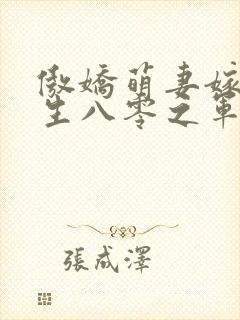 傲嬌萌妻嫁
生八零之軍
張成澤